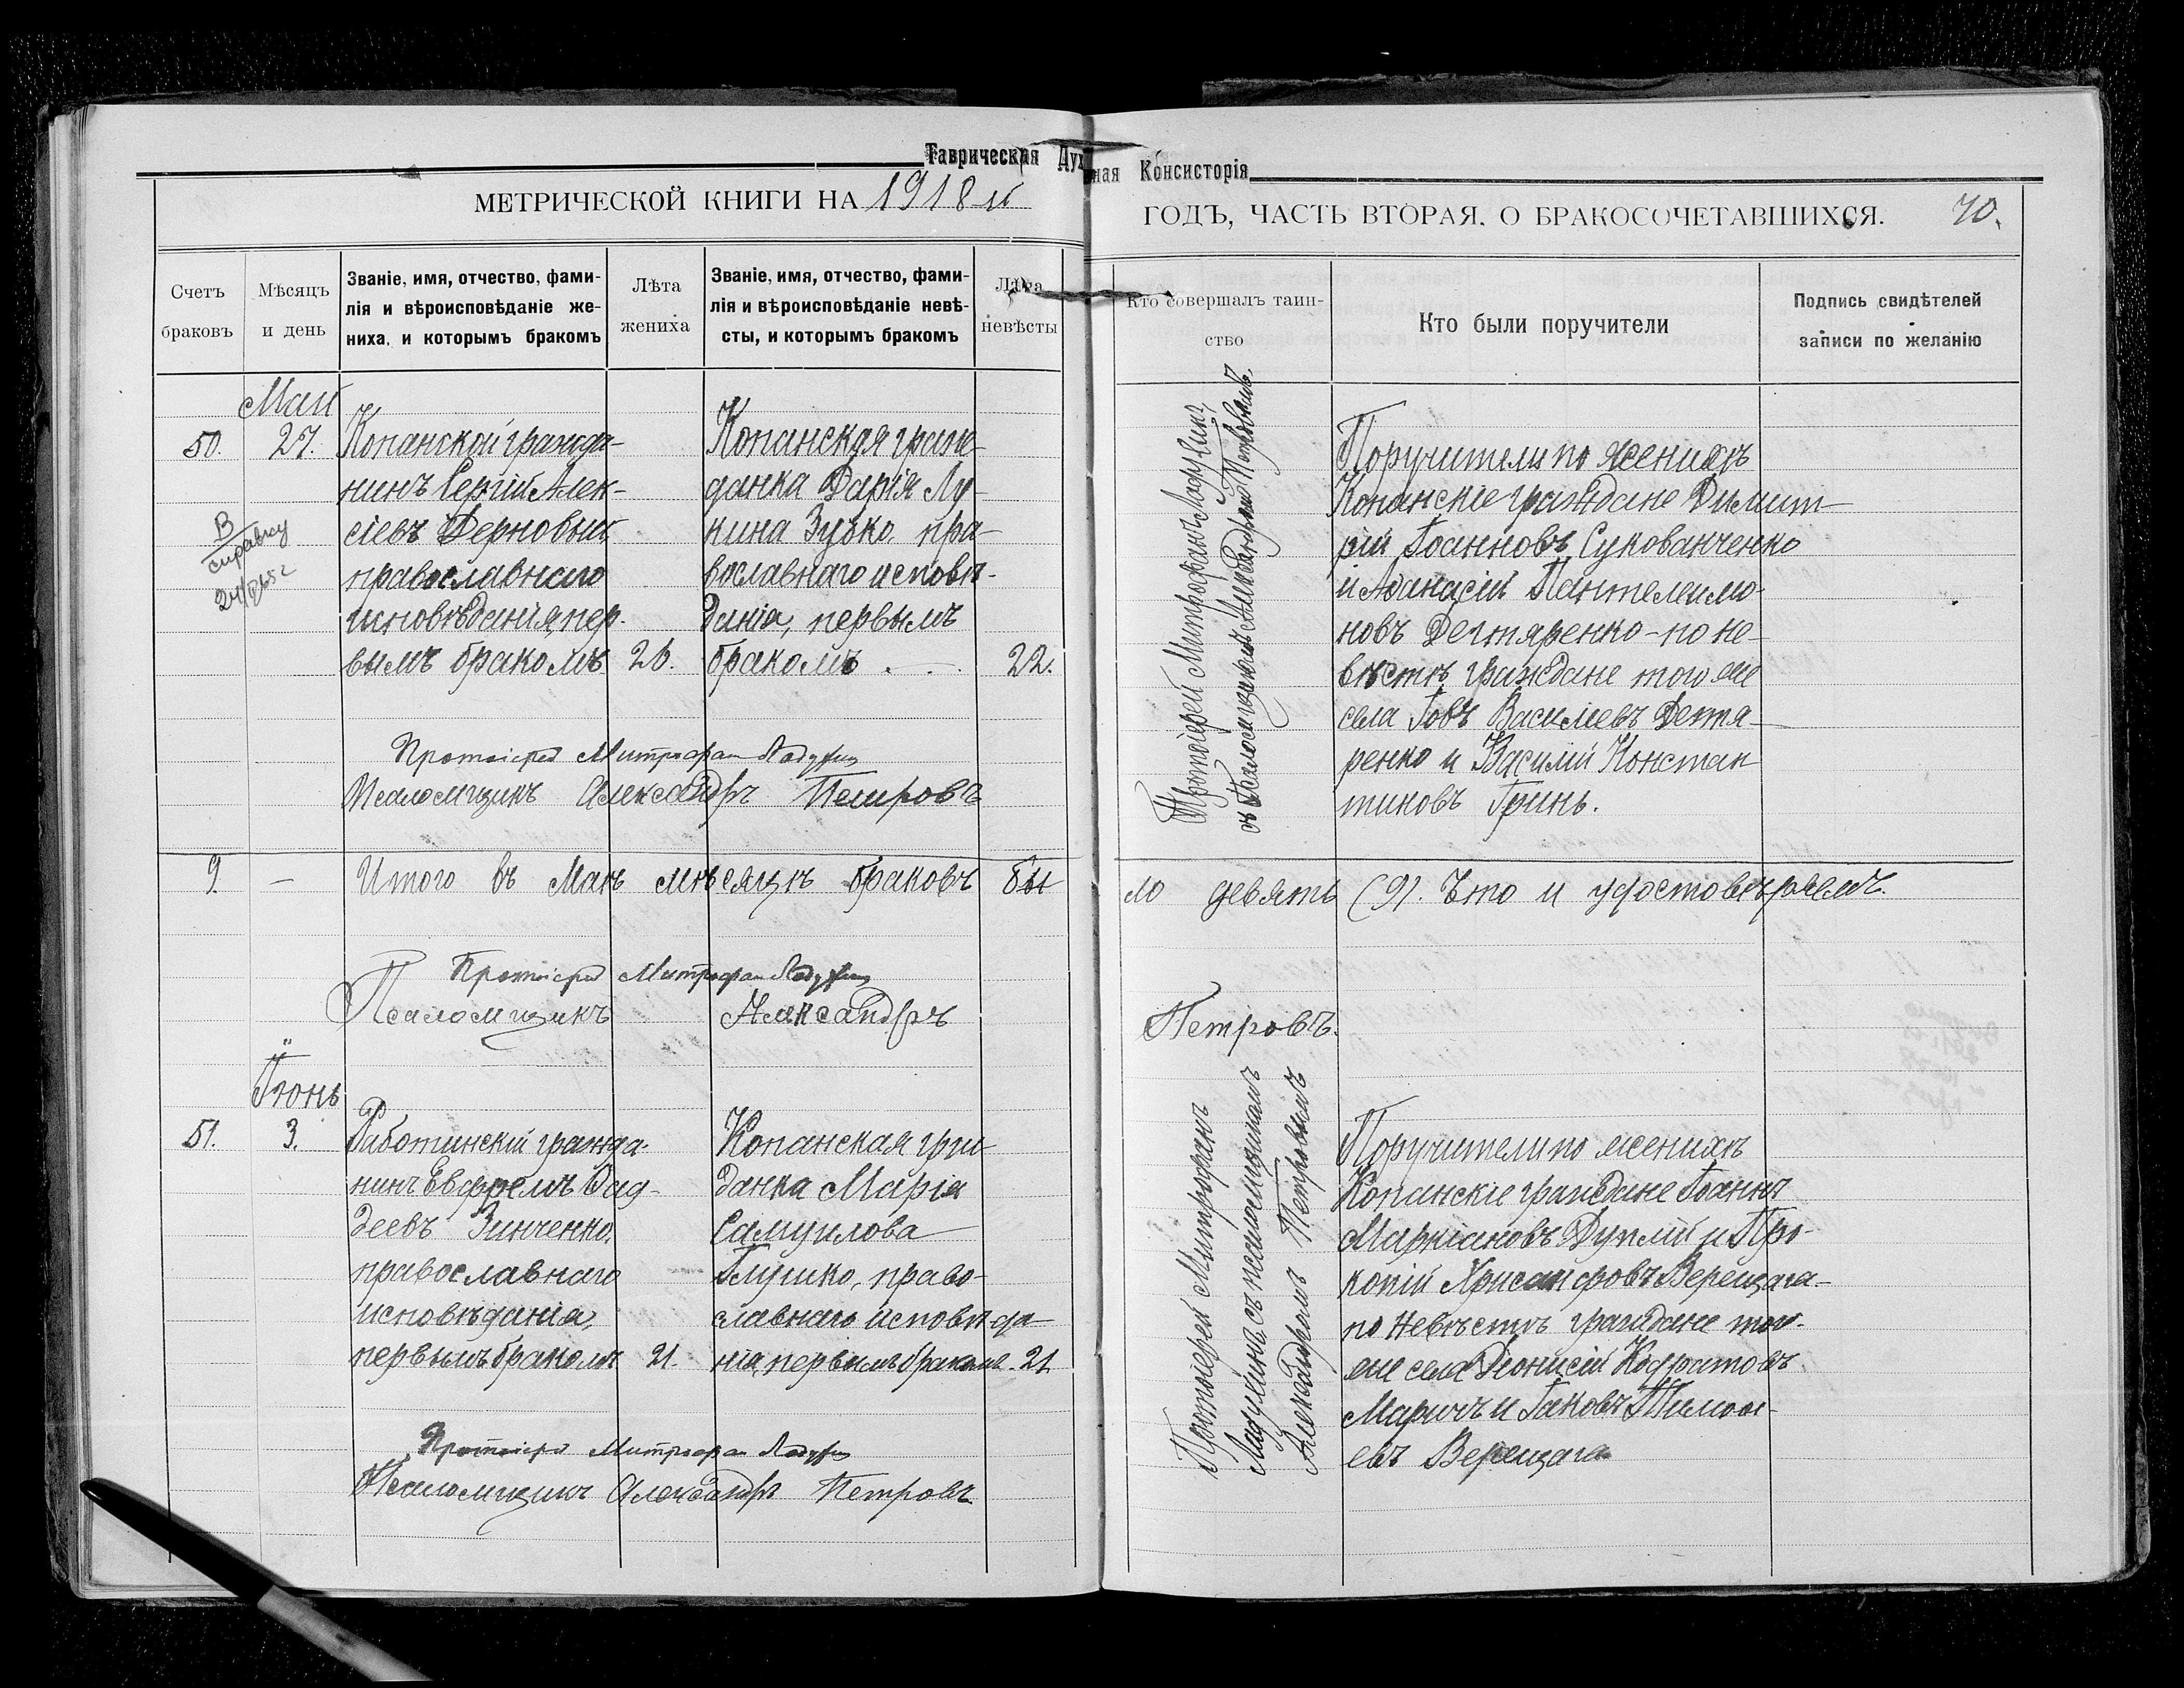 Таврическая Духовная Консисторія
МЕТРИЧЕСКОЙ КНИГИ НА 1918 й
ГОДЪ, ЧАСТЬ ВТОРАЯ, О БРАКОСОЧЕТАВШИХСЯ. 70.
Счетъ
браковъ
Мѣсяцъ
и день
Званіе, имя, отчество, фами-
лія и вѣроисповѣданіе же-
ниха, и которымъ бракомъ
Лѣта
жениха
Званіе, имя, отчество, фами-
лія и вѣроисповѣданіе невѣ-
сты, и которымъ бракомъ
Лѣта
невѣсты
Кто совершалъ таин-
ство
Кто были поручители
Подпись свидѣтелей
записи по желанію
Май
50.
27.
В
справку
Копанской гражда-
нинъ Сергій Алек-
сіевъ Дерновый
православнаго
исповѣданія, пер-
вымъ бракомъ
26.
Копанская граж-
данка Дарія Лу-
кина Зубко, пра-
вославнаго исповѣ-
данія, первымъ
бракомъ . .
22.
Протоіерей Митрофанъ
и Псаломщикъ Александръ Петровымъ.
Поручители по женихѣ
Копанскіе граждане Димит-
рій Іоанновъ Сукованченко
и Аѳанасій Пантелеимо-
новъ Дегтяренко - по не-
вѣстѣ граждане того же
села Іовъ Василіевъ Дегтя-
ренко и Василій Констан
тиновъ Гринь.
Протоіерей Митрофан
Псаломщикъ Александръ Петровъ
9.
—
Итого въ Маѣ мѣсяцѣ браковъ бы
ло девять (9). Что и удостовѣряемъ.
Протоіерей Митрофан
Псаломщикъ Александръ
Петровъ.
Іюнь
51.
3.
Работинскій гражда-
нинъ Ефремъ Ѳад-
деевъ Зинченко,
православнаго
исповѣданія,
первымъ бракомъ
21.
Копанская граж
данка Марія
Самуилова
Глушко, право-
славнаго исповѣда-
нія, первымъ бракомъ.
21.
Протоіерей Митрофанъ
съ псаломщикомъ
Александромъ Петровымъ
Поручители по женихѣ
Копанскіе граждане Іоаннъ
Маркіановъ Дуплій и Про-
копій Хрисанфовъ Верещага-
по невѣстѣ граждане того-
же села Діонисій Кодратовъ
Маричъ и Іаковъ Тимоѳе-
евъ Верещага
Протоіерей Митрофан
Псаломщикъ Александръ Петровъ.